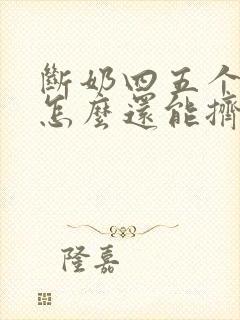 斷奶四五个
怎麼還能擠
隆嘉